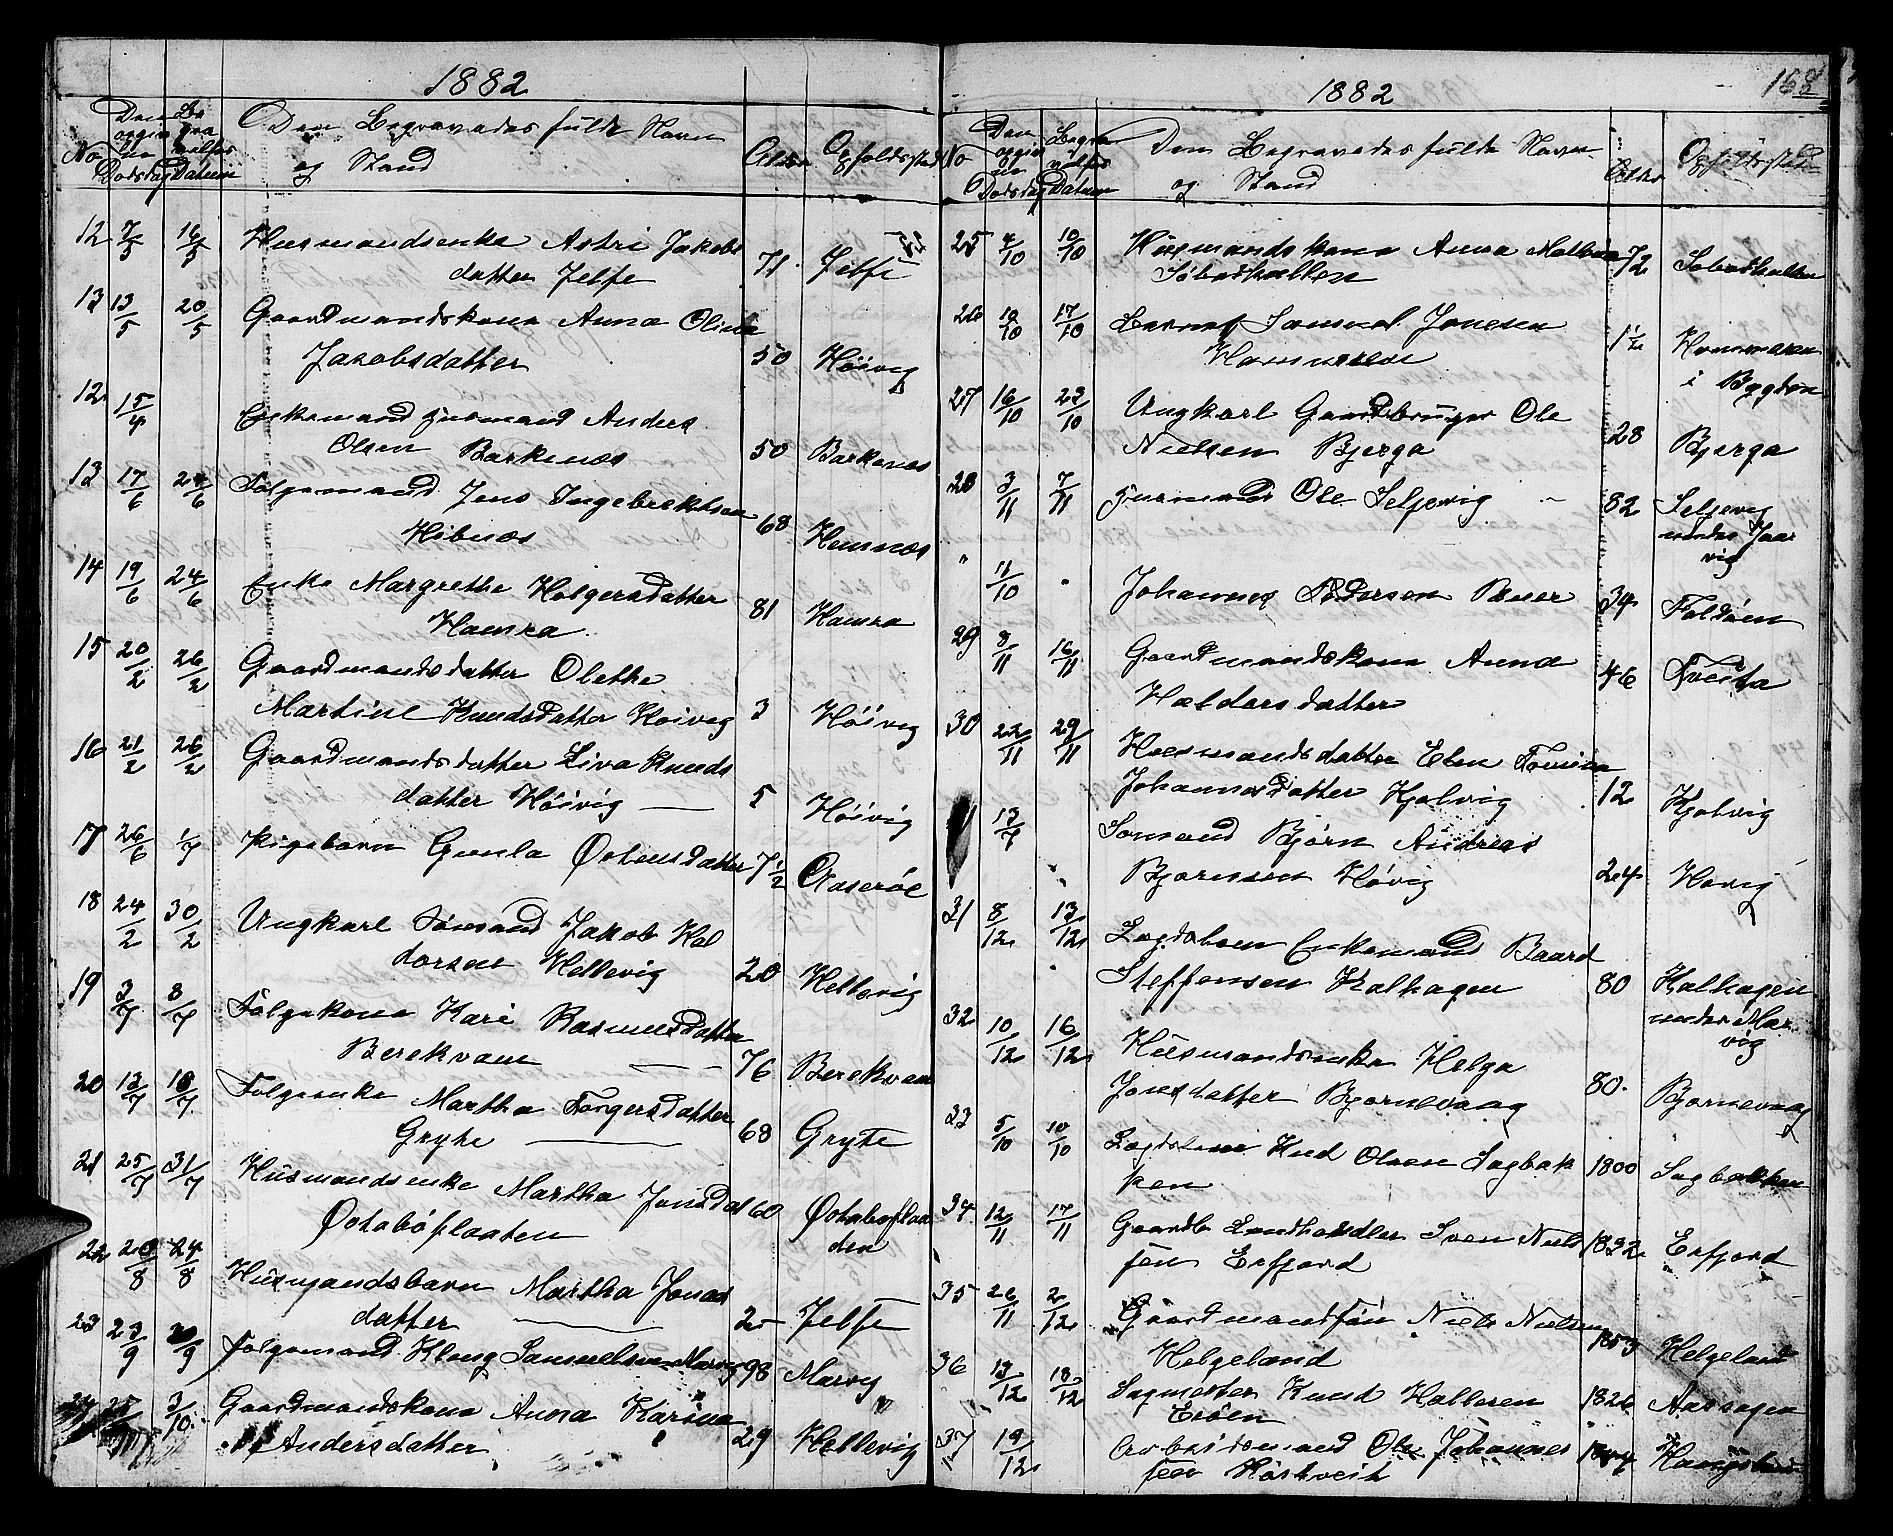 1882
No Den opgivne Dødsdag Begravelses Datum Den Begravedes fulde Navn og Stand Alder Opholdssted
12 7/5 16/5 Huusmandsenke Astri Jakobs
datter Jelse 71 Jelse
13 13/5 20/5 Gaardmandskone Anna Oline
Jakobsdatter 50 Höivig
12 15/4 Enkemand Anders
Olsen Barkenæs 50 Barkenæs
13 17/6 24/6 Folgemand Jens Ingebrektsen
Hebnæs 68
14 19/6 24/6 Enke Margrethe Holgersdatter
Hamra 81 Hamra
15 20/2 26/2 Gaardmandsdatter Olette
Martine Knudsdatter Höivig 3 Höivig
16 21/2 26/2 Gaardmandsdatter Liva Knuds
datter Höivig 5 Höivig
17 26/6 1/7 Pigebarn Gunla 7 1/2
18 24/2 30/2 Ungkarl Sömand Jakob Hal
dorsen Hellevig 20 Hellevig
19 3/7 8/7 Folgekone Kari Rasmusdatter
Berekvam 76 Berekvam
20 13/7 18/7 Folgeenke Martha Torgersdatter
Gryte 68 Gryte
21 25/7 31/7 Husmandsenke Martha Jonsdat
Østabøflaaten 60 Østabøflaa
den
22 20/8 24/8 Husmandsbarn Martha Jonas
datter 2 Jelse
23 23/9 30/9 Folgemand Kleng Samuelsen Marvig 98 Marvig
3/10 Gaardmandskone Anna Karine
Andersdatter 29 Hellevig
1882 168
No Den opgivne Dødsdag Begravelses Datum Den Begravedes fulde Navn og Stand Alder Opholdssted
25 4/10 10/10 Huusmandskone Anna Malene
72
26 10/10 17/10 Barnet Samuel Jonesen
Hammeren 1 1/2 Hammeren
i Bygden
27 16/10 23/10 Ungkarl Gaardbruger Ole
Nielsen Bjerga 28 Bjerga
28 3/11 7/11 Ole Seljevig 82 Seljevig
under Jaar
vig
" 11/10 " Johannes Pedersen 34 Foldöen
29 8/11 16/11 Gaardmandskone Anna
Haldorsdatter 46 Tveita
30 22/11 29/11 Huusmandsdatter Elen
Johannesdatter Kjølvig 12 Kjølvig
13/7 Sømand Bjørn Andreas
Bjørnsen Høvig 24 Hovig
31 8/12 13/12 Lægdslem Enkemand Baard
Steffensen Kalhagen 80 Kalhagen
under Mar
vig
32 10/12 16/12 Huusmandsenke Helga
Jonsdatter Bjørnevaag 80 Bjørnevaag
33 5/10 10/10 Lægdslem Knud Olsen Sagbak
ken 1800 Sagbakken
34 12/11 17/11 Gaardb Landhandler Sven Niel
sen Erfjord 1832 Erfjord
35 26/11 2/12 Gaardmandsön Niels Nielsen
Helgeland 1853 Helgeland
36 13/12 18/12 Sagmester Knud Halvoren
Eröen 1826
37 19/12 Arbeidsmand Ole Johannes
sen